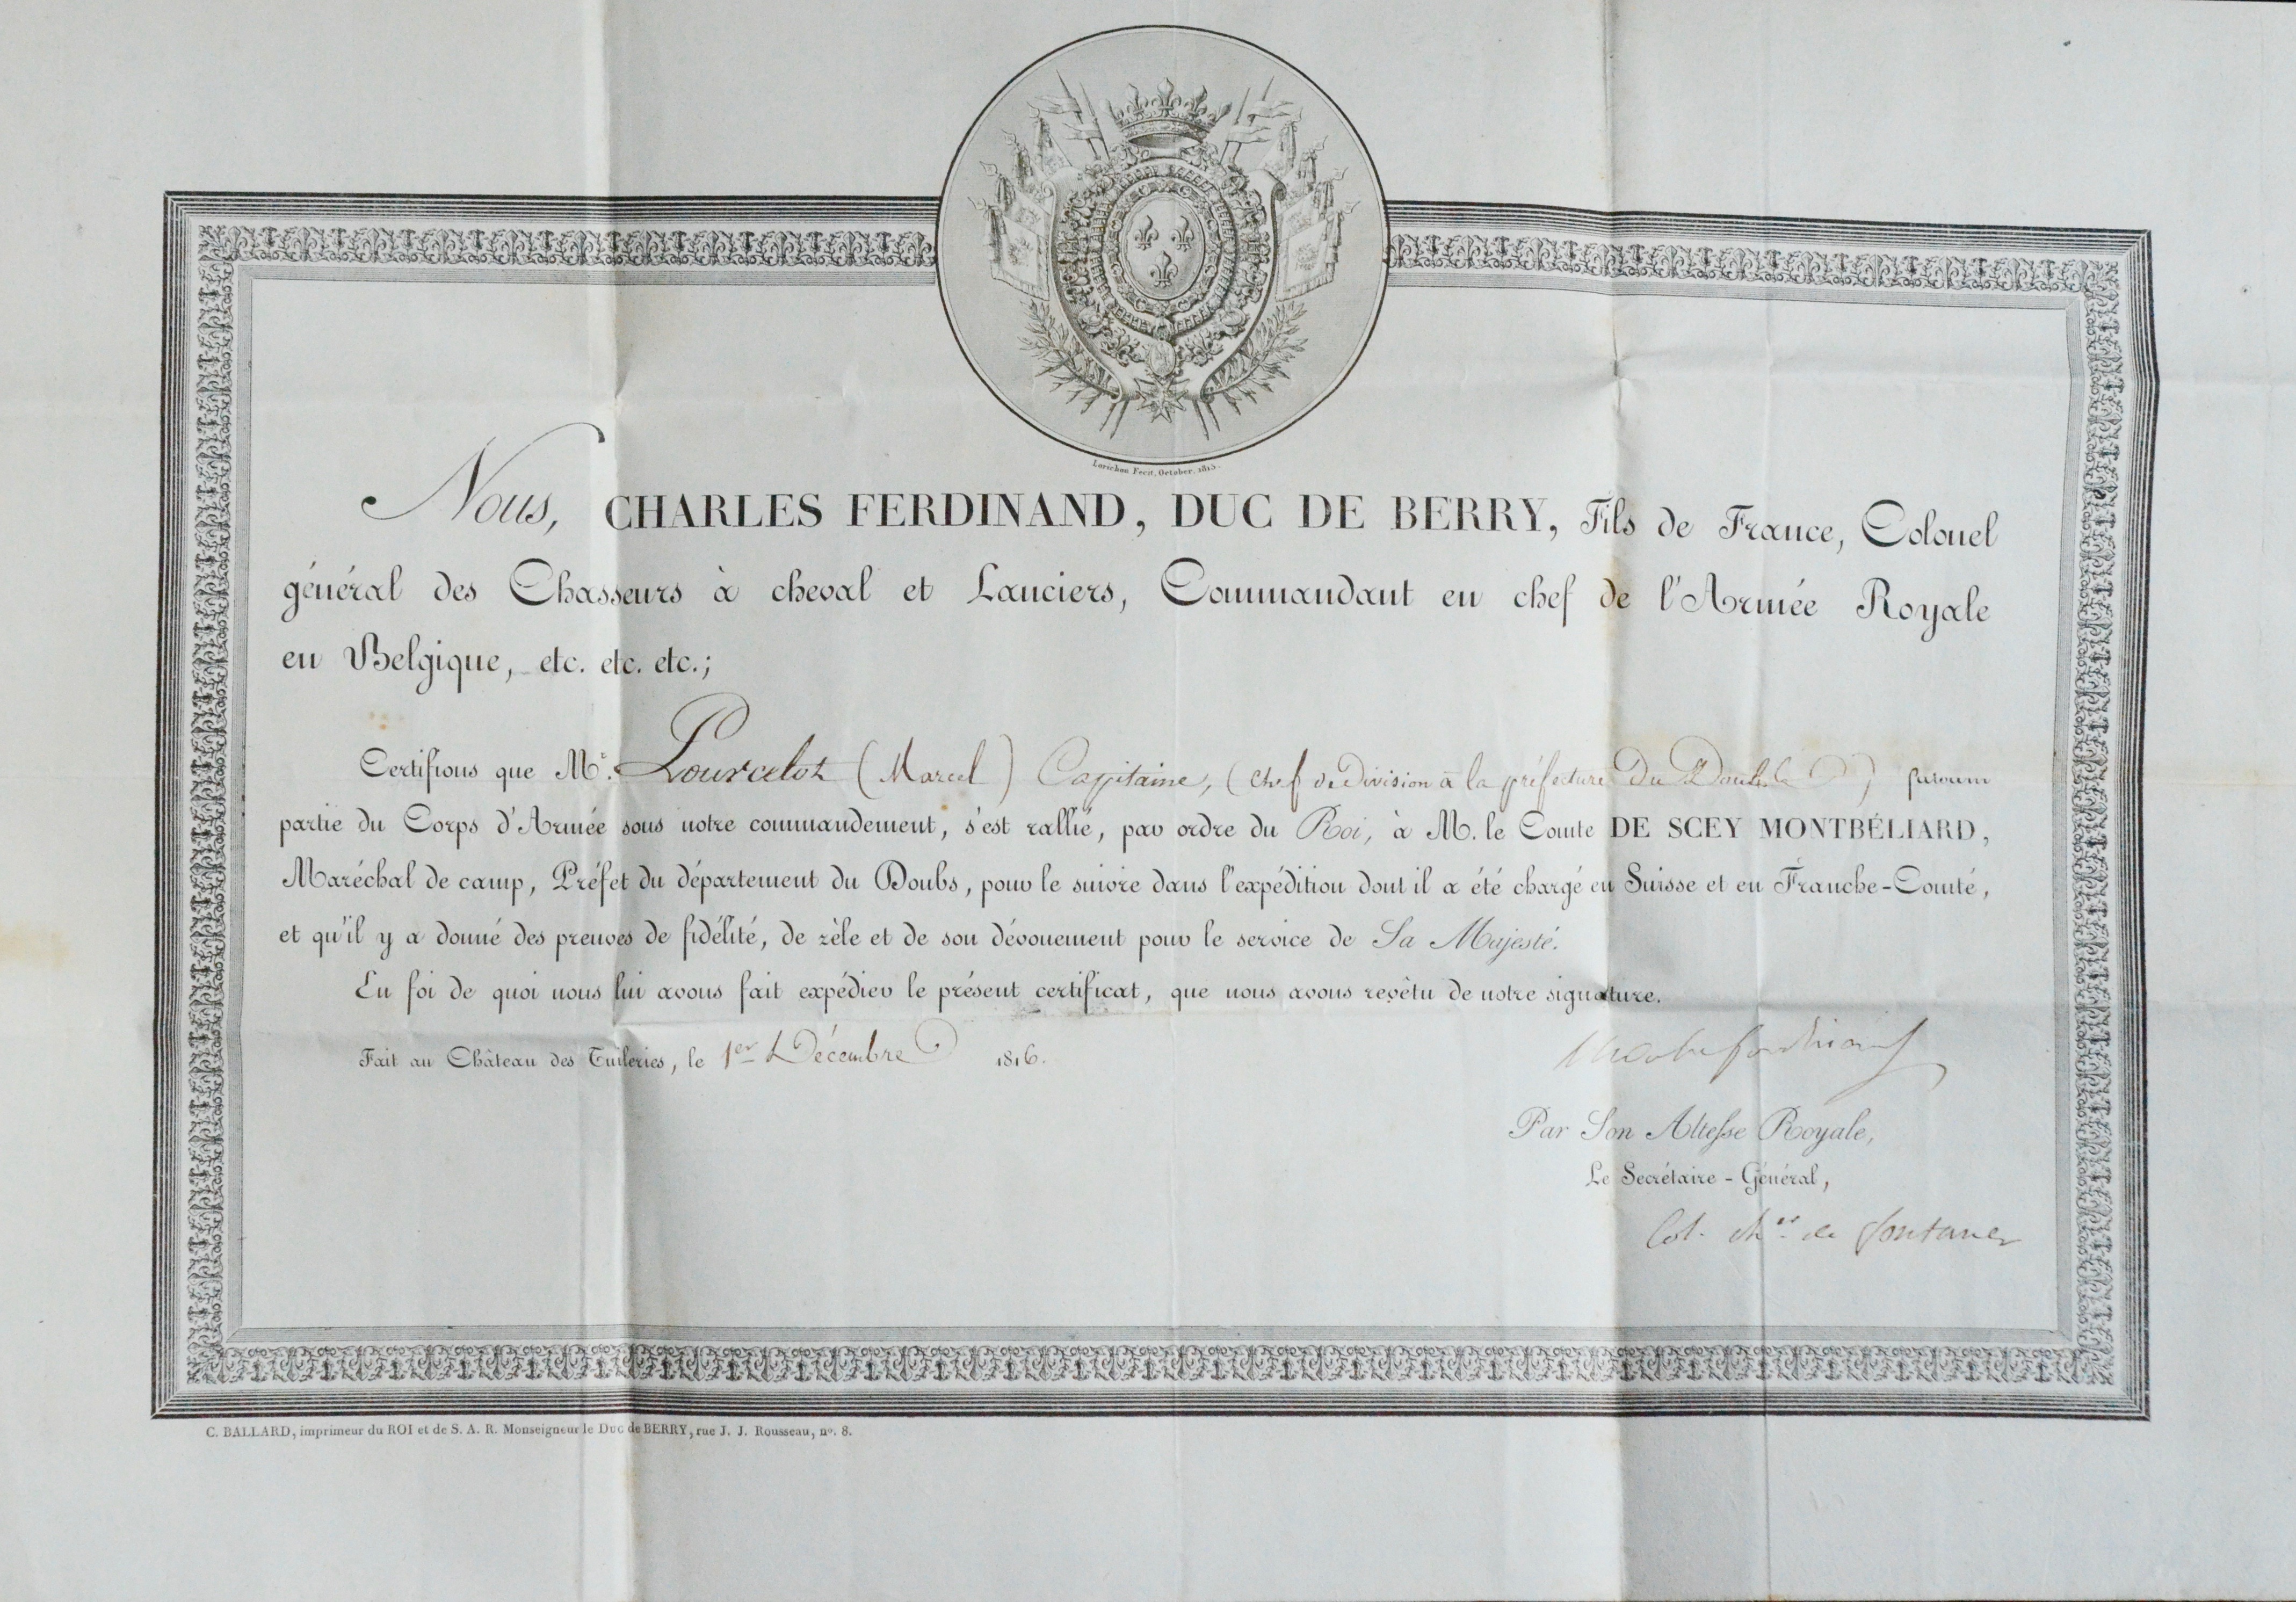 Lorichon Fecit, October. 1815.
Nous, CHARLES FERDINAND, DUC DE BERRY, Fils de France, Colonel
général des Chasseurs à cheval et Lanciers, Commandant en chef de l'Armée Royale
en Belgique, etc. etc. etc.;
Certifions que Mr. Pourcelot (Marcel) Capitaine, (Chef de Division à la préfecture du Doubs) faisant
partie du Corps d'Armée sous notre commandement, s'est rallié, par ordre du Roi, à M. le Comte DE SCEY MONTBÉLIARD,
Maréchal de camp, Préfet du département du Doubs, pour le suivre dans l'expédition dont il a été chargé en Suisse et en Franche-Comté,
et qu'il y a donné des preuves de fidélité, de zèle et de son dévouement pour le service de Sa Majesté.
En foi de quoi nous lui avons fait expédier le présent certificat, que nous avons revêtu de notre signature.
Fait au Château des Tuileries, le 1er Décembre 1816.
Charles ferdinand
Par Son Altesse Royale,
Le Secrétaire-Général,
de fontanes
C. BALLARD, imprimeur du ROI et de S. A. R. Monseigneur le Duc de BERRY, rue J. J. Rousseau, no. 8.